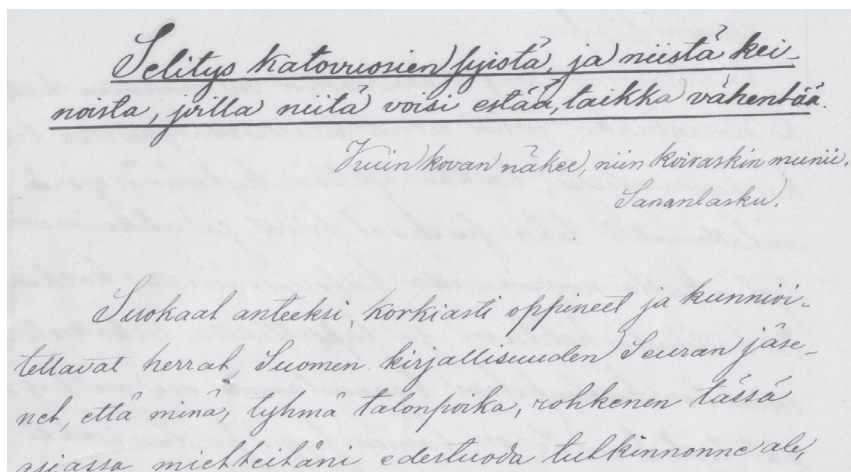 Selitys katovuosien syistä, ja niistä kei-
noista, joilla niitä voisi estää, taikka vähentää.
Kuin kovan näkee, niin koiraskin munii.
Sananlasku.
Suokaat anteeksi, korkiasti oppineet ja kunnioi-
tettavat herrat, Suomen kirjallisuuden Seuran jäse-
net, että minä, tyhmä talonpoika, rohkenen tässä
asiassa mietteitäni edestuoda tutkinnonne ale,